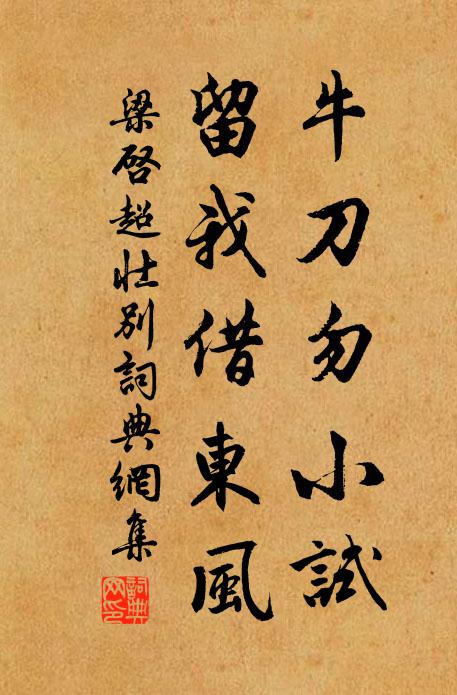 牛刀勿小試
留我借東風
梁啓超壯別詞典網集
詞典网印